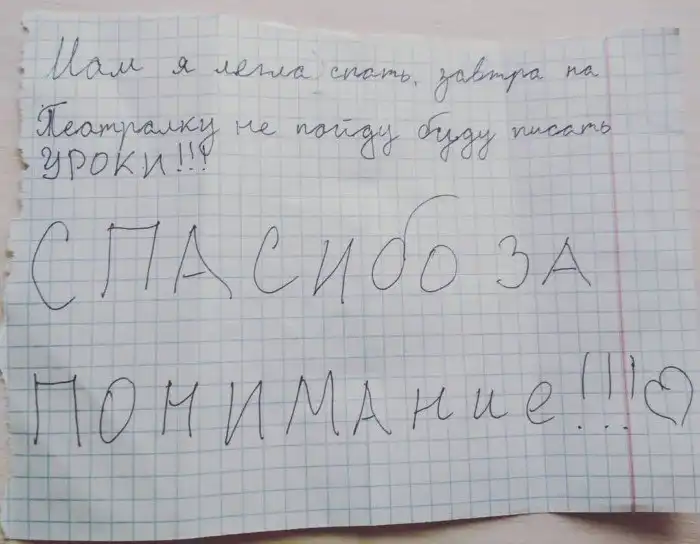 Мам я легла спать. завтра на
Театралку не пойду буду писать
УРОКИ!!!
СПАСИбО ЗА
ПОНИМАНие!!!♡